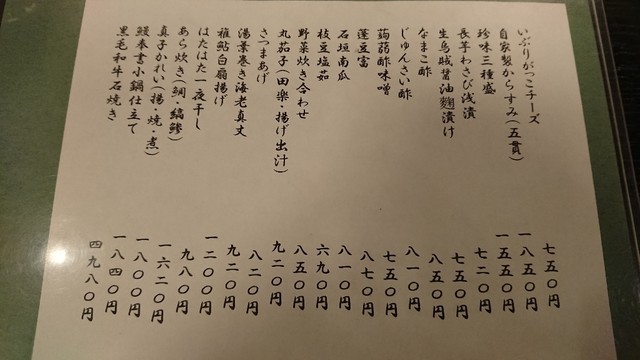 いぶりがっこチーズ 七五〇円
自家製からすみ(五貫) 一八五〇円
珍味三種盛 一五五〇円
長芋わさび浅漬 七二〇円
生烏賊醤油麹漬け 七五〇円
なまこ酢 八五〇円
じゅんさい酢 八一〇円
蒟蒻酢味噌 七五〇円
蓬豆富 八七〇円
石垣南瓜 八一〇円
枝豆塩茹 六九〇円
野菜炊き合わせ 八五〇円
丸茄子(田楽・揚げ出汁) 九二〇円
さつまあげ 八二〇円
湯葉巻き海老真丈 九二〇円
稚鮎白扇揚げ 一二〇〇円
はたはた一夜干し 九八〇円
あら炊き(鯛・縞鯵) 一六二〇円
真子かれい(揚・焼・煮) 一八〇〇円
鰻奉書小鍋仕立て 一八四〇円
黒毛和牛石焼き 四九八〇円